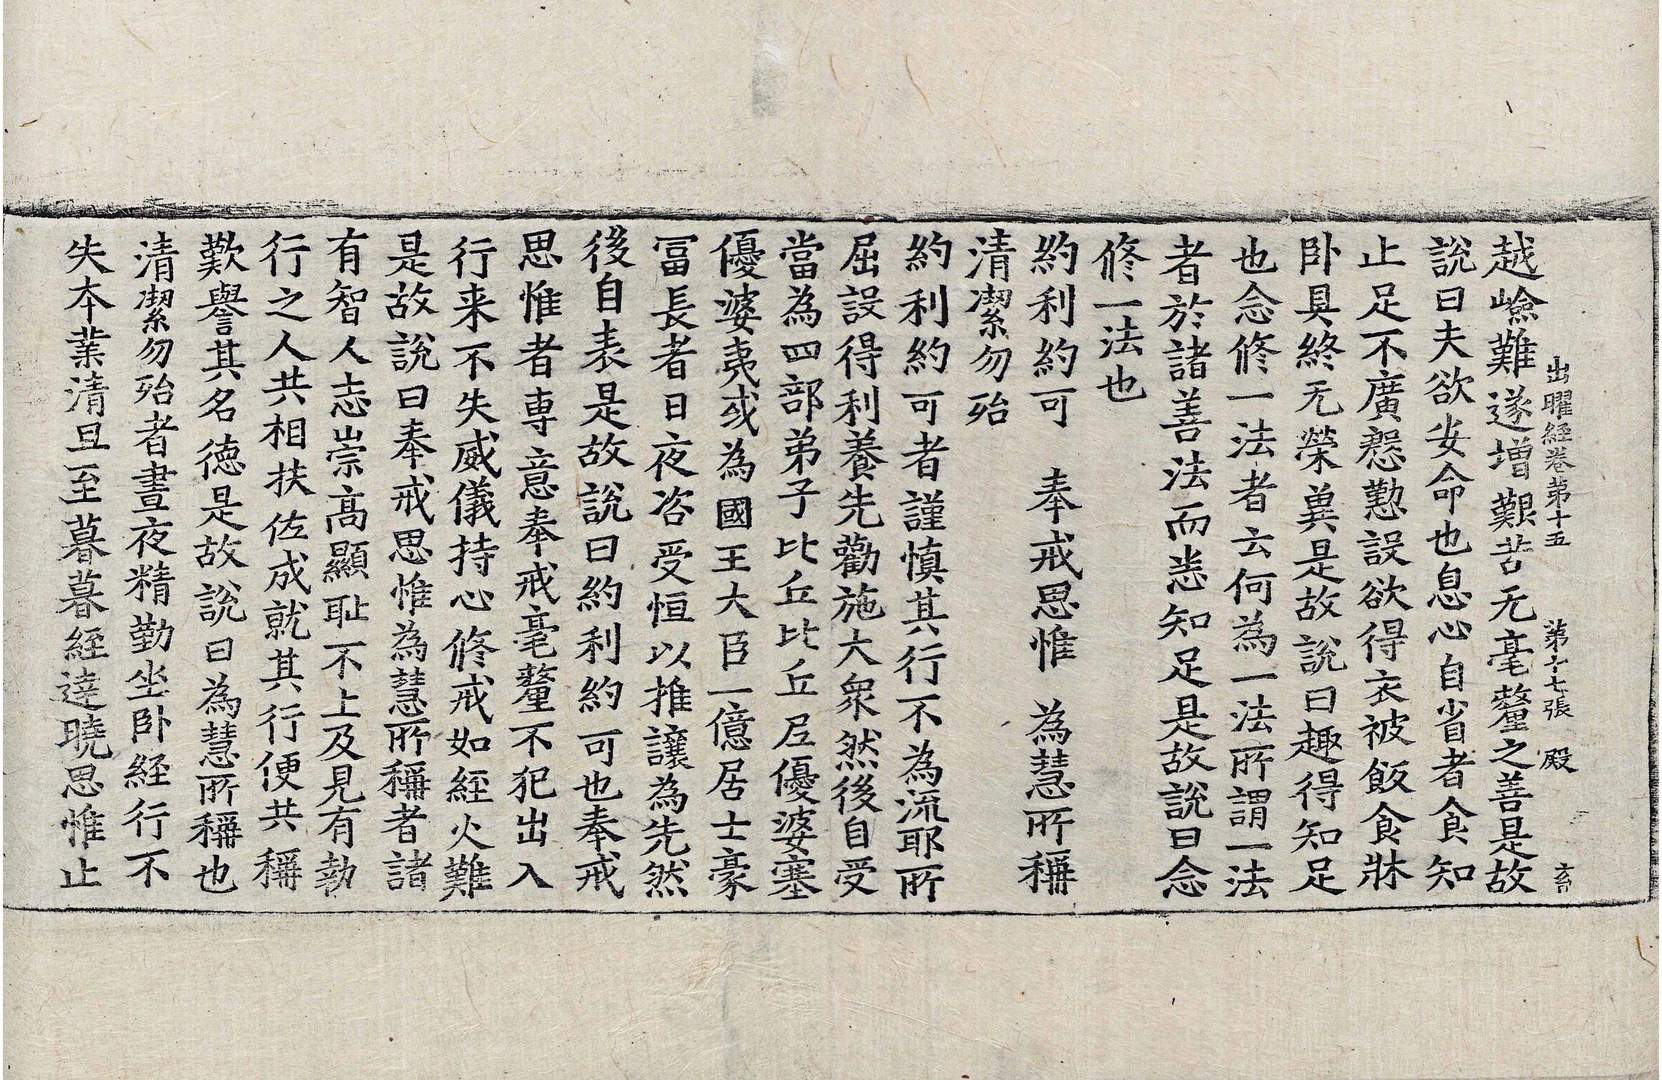 出曜経卷第十五 第十七張 殿
越嶮難遂增艱苦无毫釐之善是故
說曰夫欲安命也息心自省者食知
止足不廣慇懃設欲得衣被飯食牀
卧具終无榮兾是故說曰趣得知足
也念修一法者云何為一法所謂一法
者於諸善法而悉知足是故說曰念
修一法也
約利約可 奉戒思惟 為慧所稱
清潔勿殆
約利約可者謹慎其行不為流耶所
屈設得利養先勸施大衆然後自受
當為四部弟子比丘比丘尼優婆塞
優婆夷或為國王大臣一億居士豪
冨長者日夜咨受恒以推讓為先然
後自表是故說曰約利約可也奉戒
思惟者專意奉戒毫釐不犯出入
行来不失威儀持心修戒如經火難
是故說曰奉戒思惟為慧所稱者諸
有智人志崇高顯耻不上及見有勃
行之人共相扶佐成就其行便共稱
歎譽其名德是故說曰為慧所稱也
清潔勿殆者晝夜精勤坐卧経行不
失本業清旦至暮暮経達曉思惟止